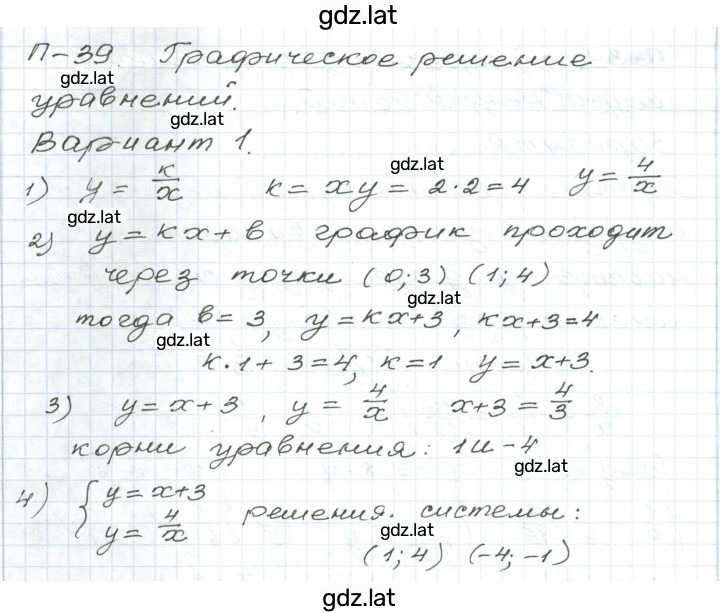 gdz.lat
П-39. Графическое решение
gdz.lat
уравнений.
gdz.lat
Вариант 1.
1) y = к/x k = xy = 2·2 = 4 y = 4/x
gdz.lat
gdz.lat
2) y = kx + b график проходит
через точки (0; 3) (1; 4)
gdz.lat
тогда b = 3, y = kx+3, kx+3=4
gdz.lat
k·1 + 3 = 4, k = 1 y = x+3.
3) y = x + 3, y = 4/x x+3 = 4/3
корни уравнения: 1 и -4
gdz.lat
4) { y = x+3
y = 4/x решения. системы:
gdz.lat
(1; 4) (-4; -1)
gdz.lat